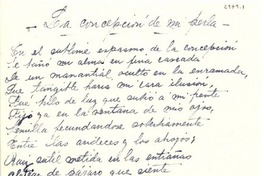 La concepción de mi perla
En el sublime espasmo de la concepción
se bañó mi alma en fina cascada
de un manantial oculto en la enramada,
fue tangible haz mi cara ilusión,
fue hilo de luz que subió a mi frente
fijo ya en la ventana de mis ojos,
semilla fecundándose sobriamente
Entre las andeces y los ahojos;
Raíz sutil metida en las entrañas
de pájaro que siente